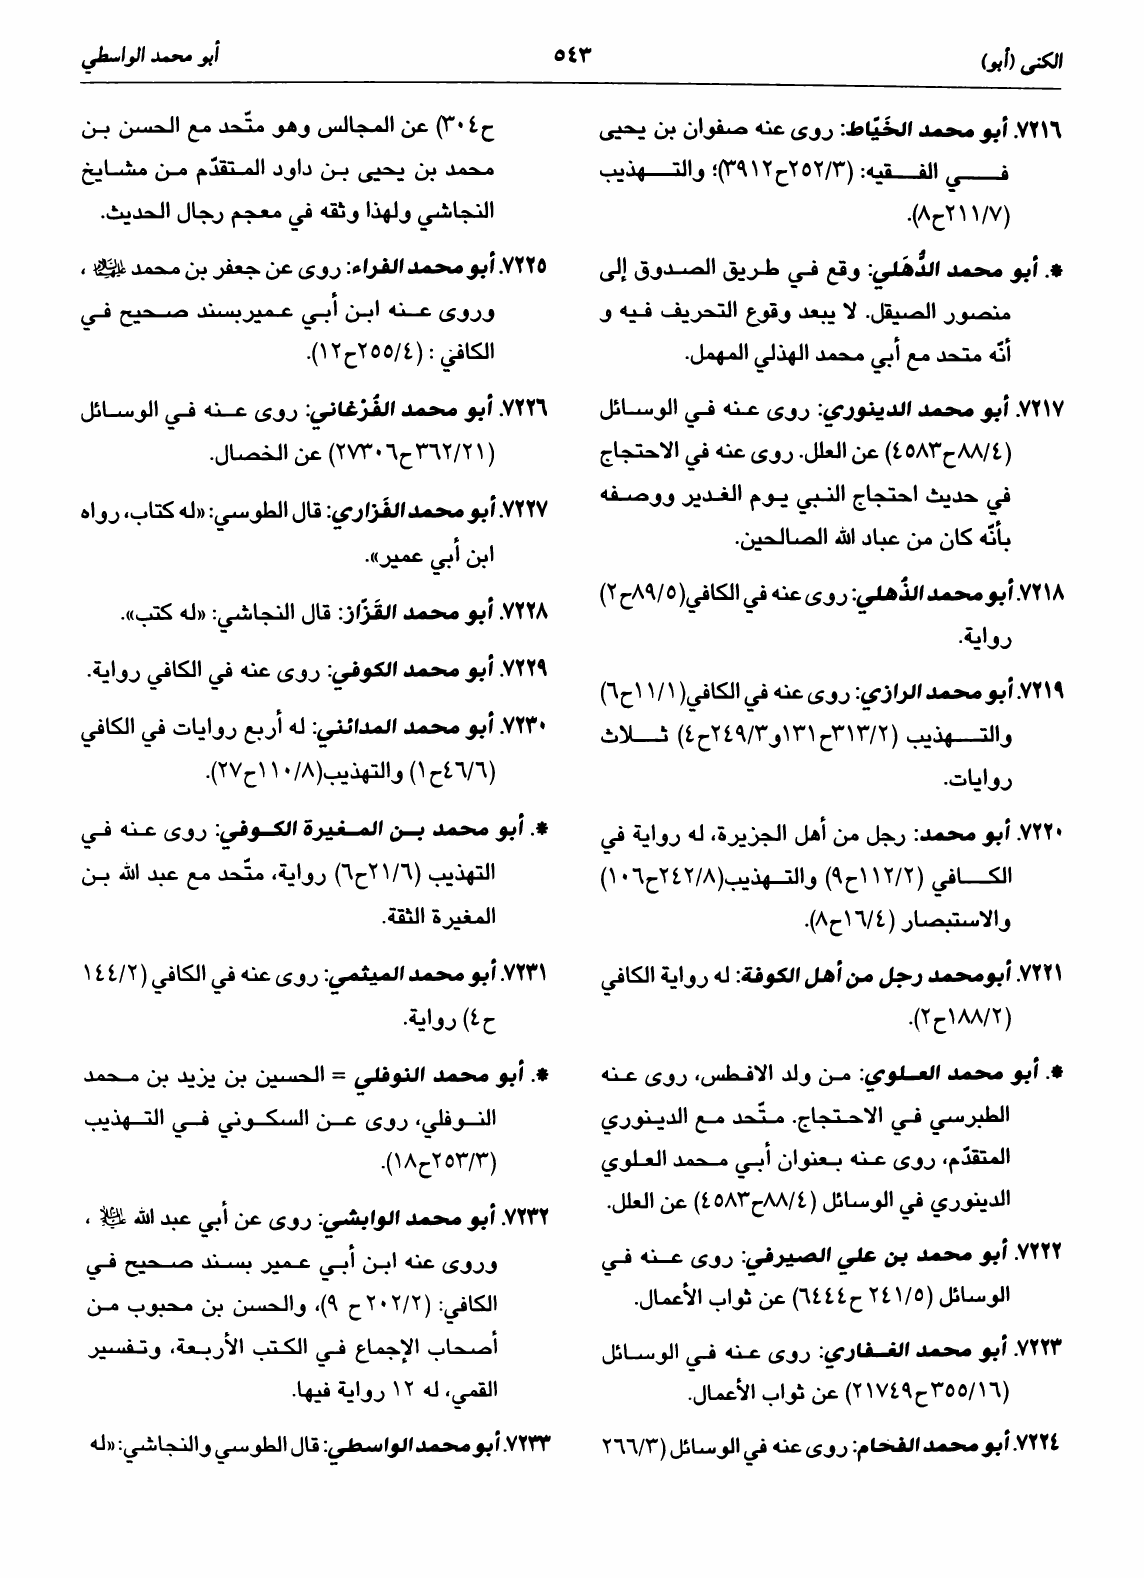 الكنى (أبو)
٥٤٣
أبو محمد الواسطي
٧٢١٦. أبو محمد الخَيّاط: روى عنه صفوان بن يحيى
في الفقيه: (٢٥٢/٣ح٣٩١٢)؛ والتهذيب
(٢١١/٧ح٨).
*. أبو محمد الدُّهَلي: وقع في طريق الصدوق إلى
منصور الصيقل. لا يبعد وقوع التحريف فيه و
أنّه متحد مع أبي محمد الهذلي المهمل.
٧٢١٧. أبو محمد الدينوري: روى عنه في الوسائل
(٨٨/٤ح٤٥٨٣) عن العلل. روى عنه في الاحتجاج
في حديث احتجاج النبي يوم الغدير ووصفه
بأنّه كان من عباد الله الصالحين.
٧٢١٨. أبو محمد الذُهلي: روى عنه في الكافي(٨٩/٥ح٢)
رواية.
٧٢١٩. أبو محمد الرازي: روى عنه في الكافي(١١/١ح٦)
والتهذيب (٣١٣/٢ح١٣١و٢٤٩/٣ح٤) ثلاث
روايات.
٧٢٢٠. أبو محمد: رجل من أهل الجزيرة، له رواية في
الكافي (١١٢/٢ح٩) والتهذيب(٢٤٢/٨ح١٠٦)
والاستبصار (١٦/٤ح٨).
٧٢٢١. أبومحمد رجل من أهل الكوفة: له رواية الكافي
(١٨٨/٢ح٢).
*. أبو محمد العلوي: من ولد الافطس، روى عنه
الطبرسي في الاحتجاج. متّحد مع الدينوري
المتقدّم، روى عنه بعنوان أبي محمد العلوي
الدينوري في الوسائل (٨٨/٤ح٤٥٨٣) عن العلل.
٧٢٢٢. أبو محمد بن علي الصيرفي: روى عنه في
الوسائل (٢٤١/٥ ح٦٤٤٤) عن ثواب الأعمال.
٧٢٢٣. أبو محمد الغفاري: روى عنه في الوسائل
(٣٥٥/١٦ح٢١٧٤٩) عن ثواب الأعمال.
٧٢٢٤. أبو محمد الفحام: روى عنه في الوسائل (٢٦٦/٣
ح٣٠٤) عن المجالس وهو متّحد مع الحسن بن
محمد بن يحيى بن داود المتقدّم من مشايخ
النجاشي ولهذا وثقه في معجم رجال الحديث.
٧٢٢٥. أبو محمد الفراء: روى عن جعفر بن محمد عليهما السلام،
وروى عنه ابن أبي عمير بسند صحيح في
الكافي : (٢٥٥/٤ح١٢).
٧٢٢٦. أبو محمد الفُرْغاني: روى عنه في الوسائل
(٣٦٢/٢١ح٢٧٣٠٦) عن الخصال.
٧٢٢٧. أبو محمد الفَزاري: قال الطوسي: «له كتاب، رواه
ابن أبي عمير».
٧٢٢٨. أبو محمد القَزّاز: قال النجاشي: «له كتب».
٧٢٢٩. أبو محمد الكوفي: روى عنه في الكافي رواية.
٧٢٣٠. أبو محمد المدائني: له أربع روايات في الكافي
(٤٦/٦ح١) والتهذيب(١١٠/٨ح٢٧).
*. أبو محمد بن المغيرة الكوفي: روى عنه في
التهذيب (٢١/٦ح٦) رواية، متّحد مع عبد الله بن
المغيرة الثقة.
٧٢٣١. أبو محمد الميثمي: روى عنه في الكافي (١٤٤/٢
ح٤) رواية.
*. أبو محمد النوفلي = الحسين بن يزيد بن محمد
النوفلي، روى عن السكوني في التهذيب
(٢٥٣/٣ح١٨).
٧٢٣٢. أبو محمد الوابشي: روى عن أبي عبد الله عليه السلام،
وروى عنه ابن أبي عمير بسند صحيح في
الكافي: (٢٠٢/٢ح ٩)، والحسن بن محبوب من
أصحاب الإجماع في الكتب الأربعة، وتفسير
القمي، له ١٢ رواية فيها.
٧٢٣٣. أبو محمد الواسطي: قال الطوسي والنجاشي: «له